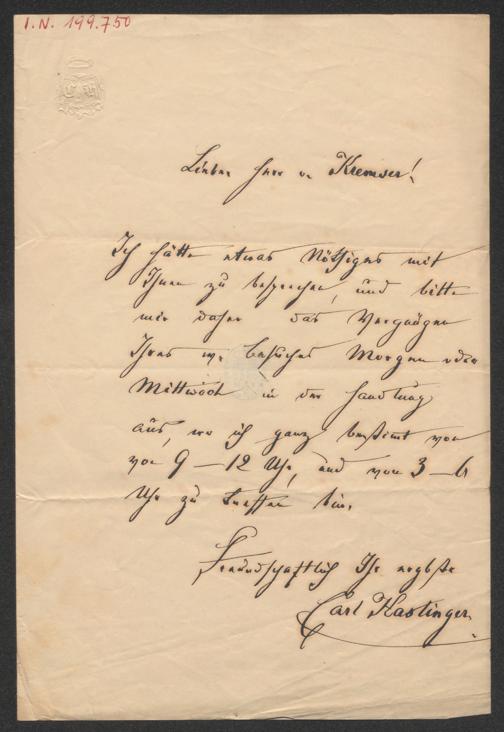 I.N. 199.750
Lieber Herr v. Kremser!
Ich hätte etwas Nöthiges mit
Ihnen zu besprechen, und bitte
mir daher das Vergnügen
Ihres w. Besuches Morgen oder
Mittwoch in der Handlung
aus, wo ich ganz bestimt von
von 9 – 12 Uhr, und von 3 – 6
Uhr zu treffen bin.
Freundschaftlich Ihr ergbste
Carl Haslinger